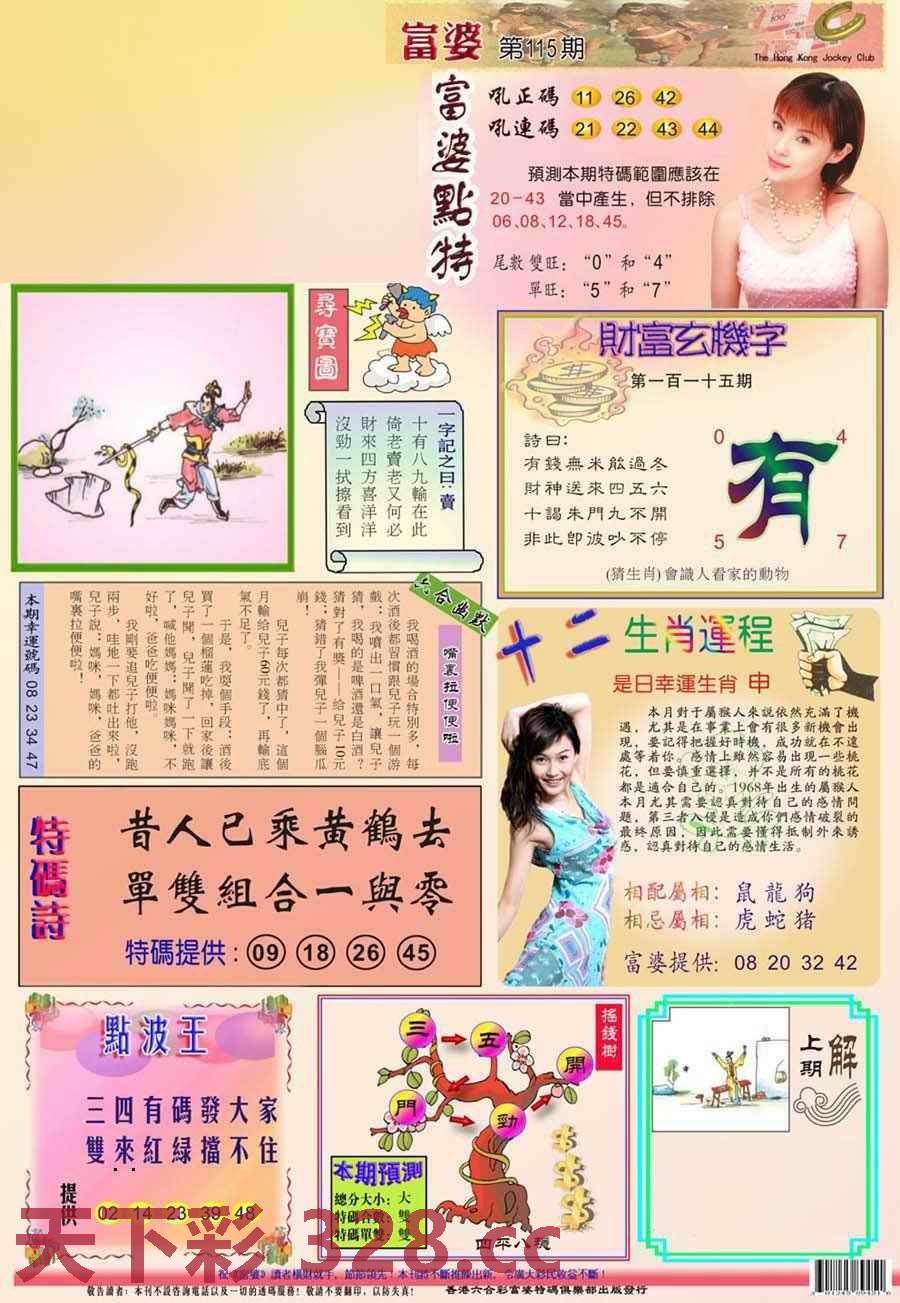 富婆 第115期
The Hong Kong Jockey Club
富婆點特
吼正碼 11 26 42
吼連碼 21 22 43 44
預測本期特碼範圍應該在
20-43 當中產生，但不排除
06、08、12、18、45。
尾數雙旺：“0”和“4”
單旺：“5”和“7”
尋寶圖
一字記之曰：賣
十有八九輸在此
倚老賣老又何必
財來四方喜洋洋
沒勁一拭擦看到
財富玄機字
第一百一十五期
詩曰：
有錢無米能過冬
財神送來四五六
十謁朱門九不開
非此即被吵不停
0 4
有
5 7
(猜生肖)會識人看家的動物
本期幸運號碼 08 23 34 47
六合幽默
嘴裏拉便便啦
我喝酒的場合特別多，每
次酒後都習慣跟兒子玩一個游
戲：我噴出一口氣，讓兒子
猜，我喝的是啤酒還是白酒？
猜對了有獎——給兒子10元
錢；猜錯了我彈兒子一個腦瓜
崩！
兒子每次都猜中了，這個
月輸給兒子60元錢了，再輸底
氣不足了。
于是，我耍個手段：酒後
買了一個榴蓮吃掉，回家後讓
兒子聞，兒子聞了一下就跑
了，喊他媽媽：媽咪媽咪，不
好啦，爸爸吃便便啦。
我剛要追兒子打他，沒跑
兩步，哇地一下都吐出來啦，
兒子說：媽咪，媽咪，爸爸的
嘴裏拉便便啦！
十二生肖運程
是日幸運生肖 申
本月對于屬猴人來說依然充滿了機
遇，尤其是在事業上會有很多新機會出
現，要記得把握好時機，成功就在不遠
處等着你。感情上雖然容易出現一些桃
花，但要慎重選擇，并不是所有的桃花
都是適合自己的。1968年出生的屬猴人
本月尤其需要認真對待自己的感情問
題，第三者入侵是造成你們感情破裂的
最終原因，因此需要懂得抵制外來誘
惑，認真對待自己的感情生活。
相配屬相：鼠龍狗
相忌屬相：虎蛇猪
富婆提供：08 20 32 42
特碼詩
昔人已乘黃鶴去
單雙組合一與零
特碼提供：09 18 26 45
點波王
三四有碼發大家
雙來紅綠擋不住
提供
02 14 23 39 48
搖錢樹
三 五 開
門 勁
本期預測
總分大小：大
特碼合數：雙
特碼單雙：雙
四平八穩
上期解
天下彩 328.cc
祝《富婆》讀者橫財就手，節節領先！本刊將不斷推陳出新，令廣大彩民收益不斷！
敬告讀者：本刊不設咨詢電話以及一切的透碼服務！敬請不要翻印，以防失真！
香港六合彩富婆特碼俱樂部出版發行